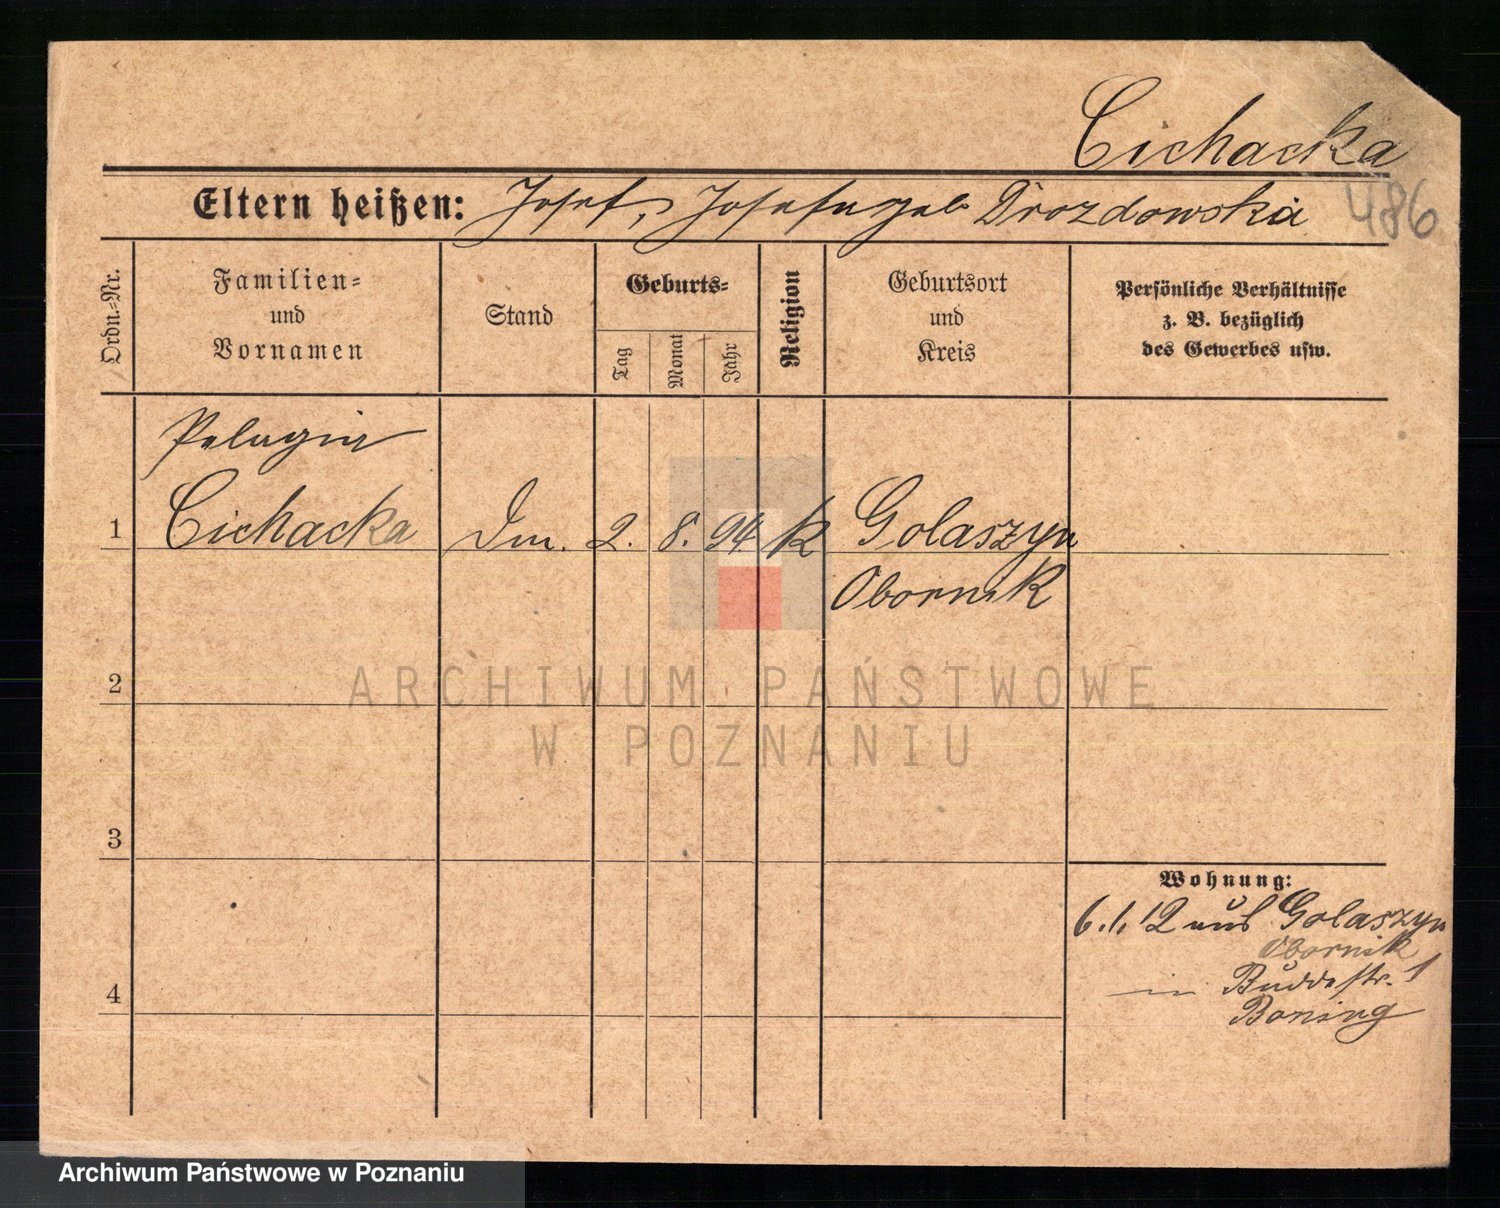 Cichacka
Eltern heißen: Josef, Josefa geb. Drozdowska
486
Ordn.=Nr.
Familien=
und
Vornamen
Stand
Geburts=
Tag
Monat
Jahr
Religion
Geburtsort
und
Kreis
Persönliche Verhältnisse
z. B. bezüglich
des Gewerbes usw.
Pelagia
1 Cichacka Dm. 2. 8. 94 K Golaszyn
Obornik
2
3
4
Wohnung:
6.1.12 aus Golaszyn
Obornik
in Buddestr. 1
Boning
ARCHIWUM PAŃSTWOWE
W POZNANIU
Archiwum Państwowe w Poznaniu